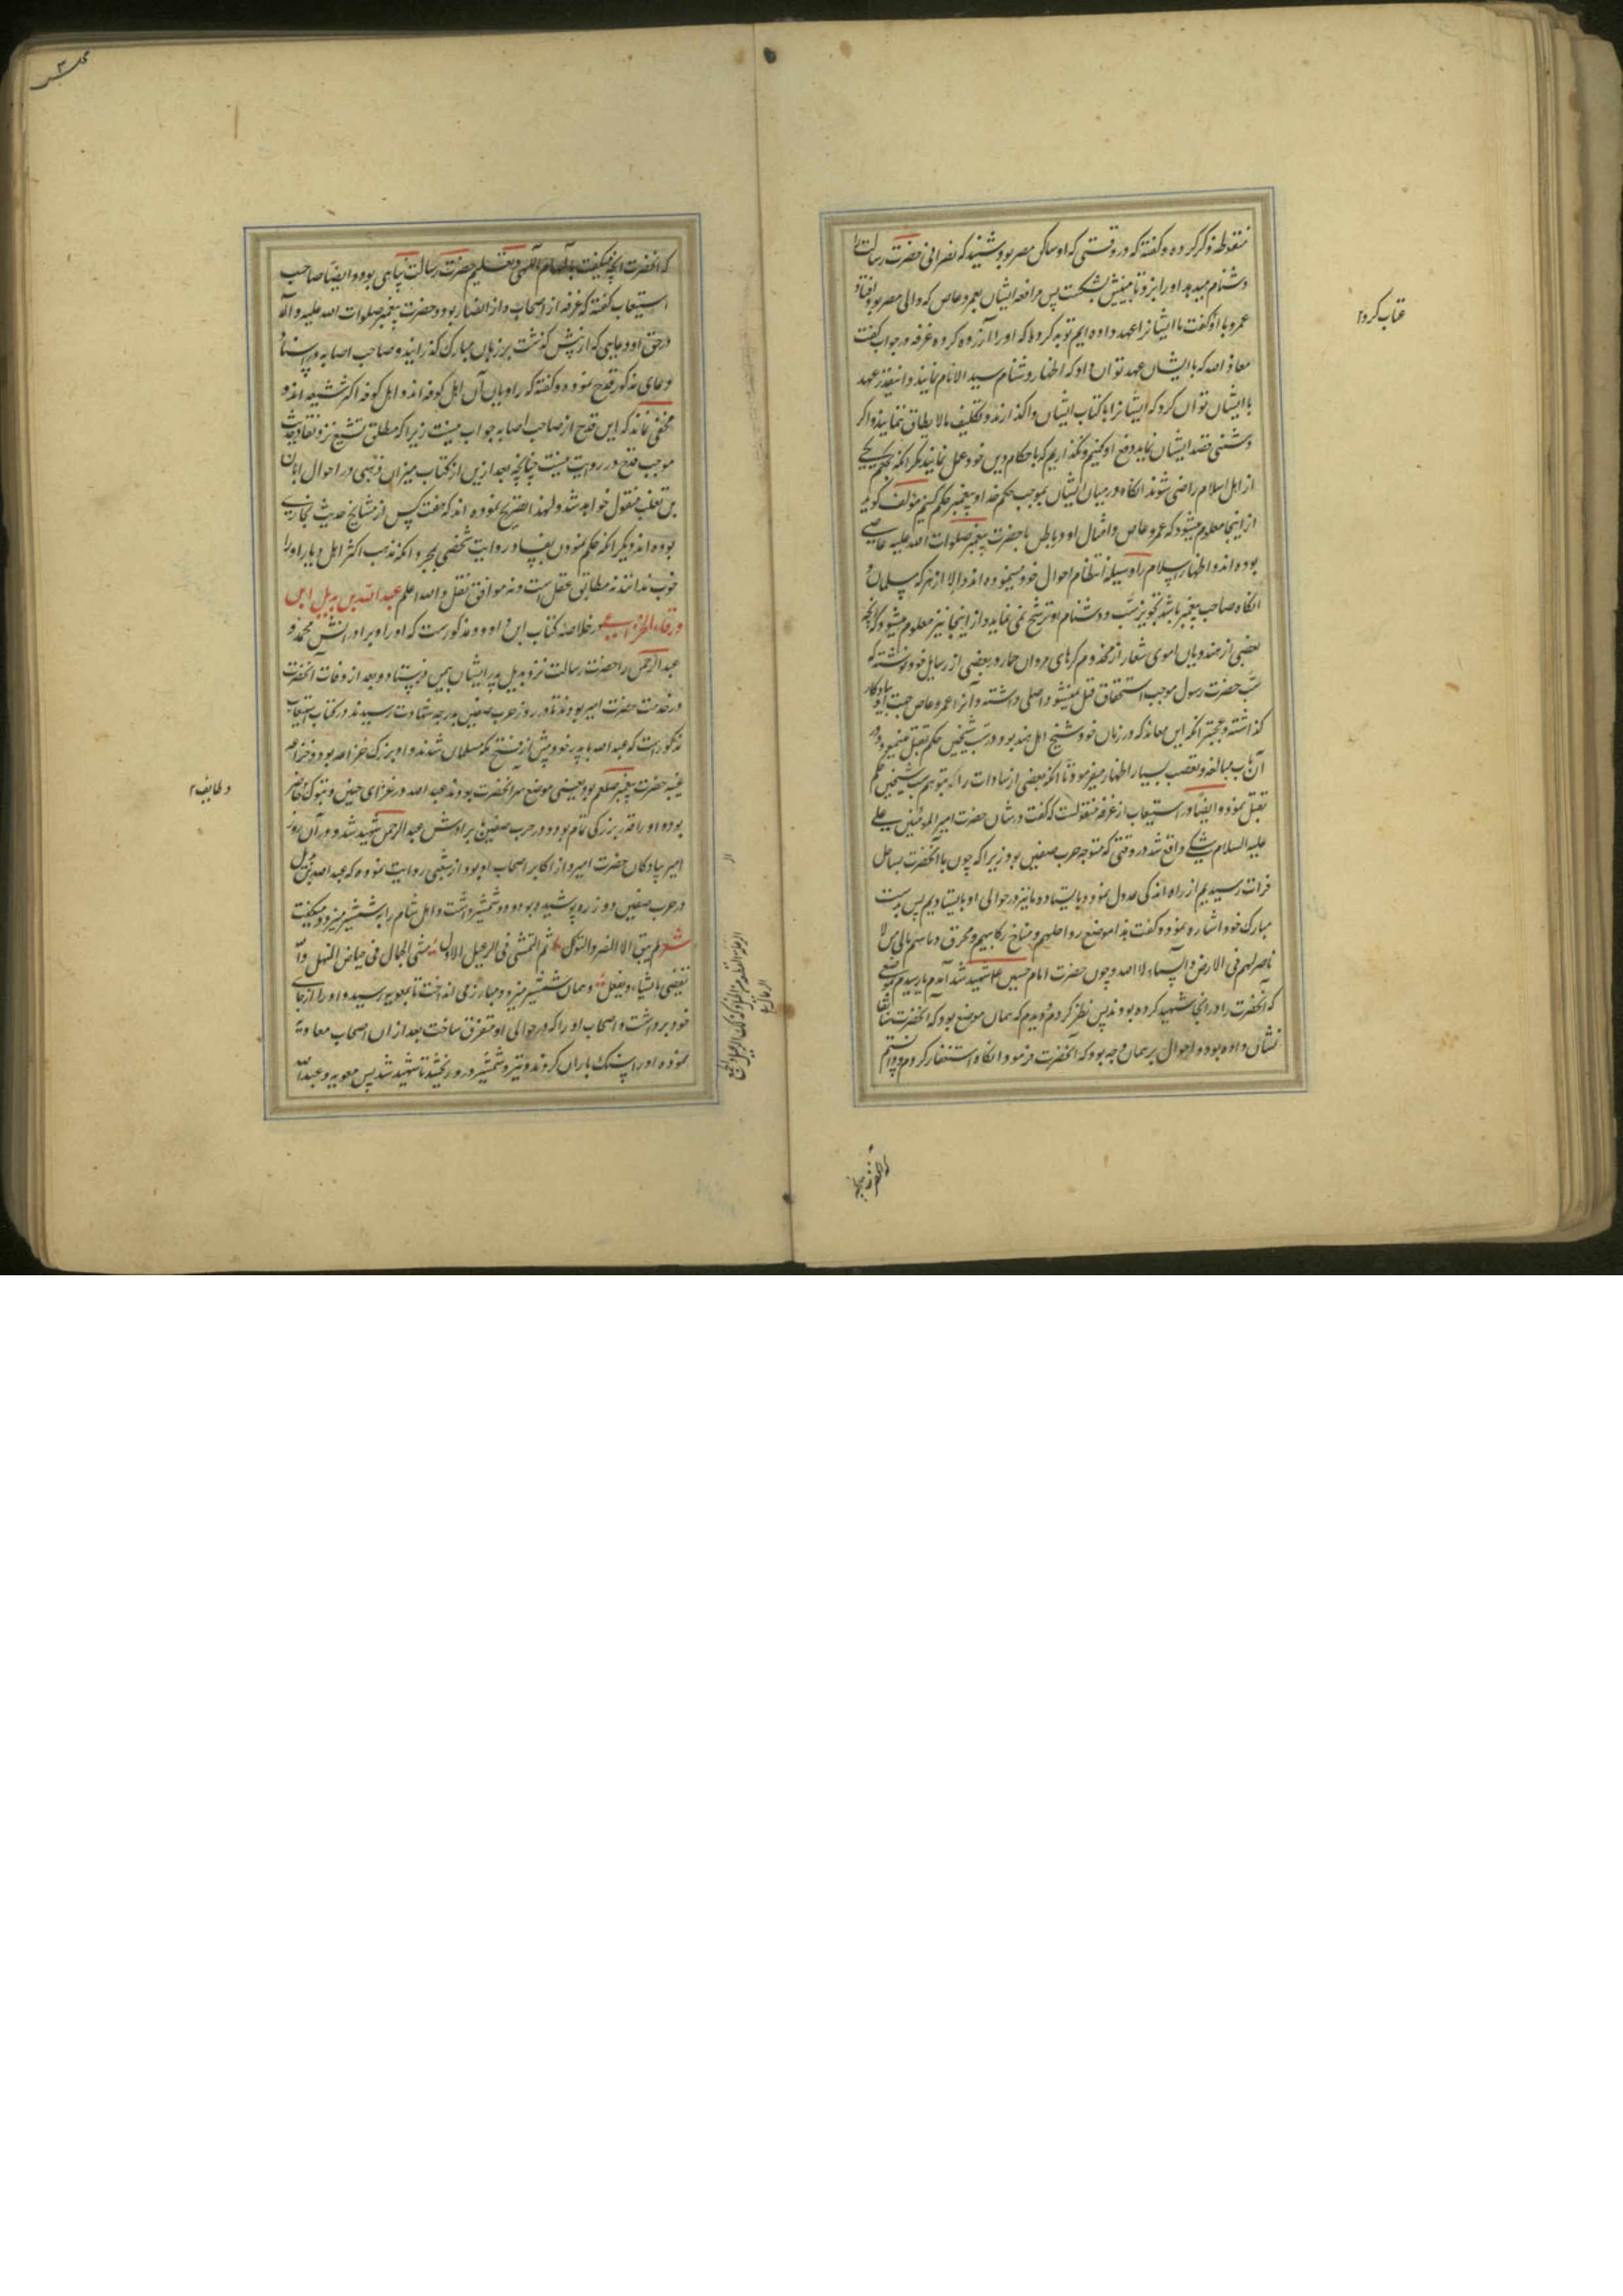 منقوطه ذکر کرده و گفته که در وقتی که او ساکن مصر بود شنید که نصرانی حضرت رسالت را
دشنام میدهد او را بزد تا بینیش بشکست پس مرافعه ایشان بعمرو عاص که والی مصر بود افتاد
عمرو با او گفت ما ایشانرا عهد داده ایم توبه کرده که او را آزرده کرده غرفه در جواب گفت
معاذ الله که با ایشان عهد توان داد که اظهار دشنام سید الانام نمایند و اینقدر عهد
با ایشان توان کرد که ایشانرا با کتاب ایشان واگذارند و تکلیف مالایطاق ننمایند و اگر
دشمنی قصد ایشان نماید دفع او کنیم و بگذاریم که باحکام دین خود عمل نمایند مگر آنکه بحکم یکی
از اهل اسلام راضی شوند آنگاه در میان ایشان بموجب حکم خدا و پیغمبر حکم کنیم مؤلف گوید
از اینجا معلوم میشود که عمرو عاص و امثال او در باطن با حضرت پیغمبر صلوات الله علیه عاصی
بوده اند و اظهار اسلام را وسیله انتظام احوال خود مینموده اند والا از هر که مسلمان و
آنگاه صاحب پیغمبر باشد تجویز سب و دشنام او ترشح نمی نماید و از اینجا نیز معلوم میشود که آنچه
بعضی از هندویان اموی شعار از مخدوم کرهای مروان حمار در بعضی از رسایل خود نوشته که
سب حضرت رسول موجب استحقاق قتل نمیشود اصلی داشته و آنرا عمرو عاص جهت او یادگار
گذاشته و عجبتر آنکه این معاند که در زمان خود شیخ اهل هند بود در سب شیخین حکم بقتل مینمود و در
آن باب مبالغه و تعصب بسیار اظهار میفرمود تا آنکه بعضی از سادات را که بتوهم سب شیخین حکم
بقتل نمود و ایضا در استیعاب از غرفه منقولست که گفت در شان حضرت امیر المومنین علی
علیه السلام شکی واقع شد در وقتی که متوجه حرب صفین بود زیرا که چون با آنحضرت بساحل
فرات رسیدیم از راه اندکی عدول نمود و بایستاد و ما نیز در حوالی او بایستادیم پس بدست
مبارک خود اشاره نمود و گفت هذا موضع رواحلهم و مناخ رکابهم و مهراق دمائهم بابی من لا
ناصر لهم فی الارض و السماء الا الله و چون حضرت امام حسین ع شهید شد آمدم تا رسیدم بموضعی
که آنحضرت را در آنجا شهید کرده بودند پس نظر کردم و دیدم که همان موضع بود که آنحضرت سابقا
نشان داده بود و احوال بر همان وجه بود که آنحضرت فرمود آنگاه استغفار کردم و دانستم
عتاب کرد
که آنحضرت آنچه
که آنحضرت آنچه میگفت بالهام الهی و تعلیم حضرت رسالت پناهی بود و ایضا صاحب
استیعاب گفته که غرفه از اصحاب و از انصار بود و حضرت پیغمبر صلوات الله علیه و آله
در حق او دعایی که از پیش گذشت بر زبان مبارک گذرانید و صاحب اصابه در اسناد
دعای مذکور قدح نموده و گفته که راویان آن اهل کوفه اند و اهل کوفه اکثر شیعه اند و
مخفی نماند که این قدح از صاحب اصابه جواب نیست زیرا که مطلق تشیع نزد نقاد حدیث
موجب قدح در روایت نیست چنانچه بعد ازین از کتاب میزان ذهبی در احوال ابان
بن تغلب منقول خواهد شد و لهذا تصریح نموده اند که هفت کس از مشایخ حدیث بخاری
بوده اند دیگر آنکه حکم نمودن بفساد روایت شخصی بمجرد آنکه مذهب اکثر اهل دیار او را
خوب ندانند نه مطابق عقل است و نه موافق نقل والله اعلم عبد الله بن بدیل ابن
ورقاء الخزاعی در خلاصه کتاب ابن داود مذکور است که او را و برادرانش محمد و
عبد الرحمن را حضرت رسالت نزد بدیل پدر ایشان بیمن فرستاد و بعد از وفات آنحضرت
در خدمت حضرت امیر بودند تا در روز حرب صفین بدرجه شهادت رسیدند در کتاب استیعاب
مذکور است که عبد الله با پدر خود پیش از فتح مکه مسلمان شدند و او بزرگ خزاعه بود و خزاعه
عیبه حضرت پیغمبر صلعم بود یعنی موضع سر آنحضرت بودند عبد الله در غزای حنین و تبوک حاضر
بود و او را قدر بزرگی تمام بود و در حرب صفین با برادرش عبد الرحمن شهید شد و در آن روز
امیر پیادگان حضرت امیر و از اکابر اصحاب او بود از شعبی روایت نموده که عبد الله بن بدیل
در حرب صفین دو زره پوشیده بود و دو شمشیر داشت و اهل شام را بشمشیر میزد و میگفت
شعر لم یبق الا الصبر و التوکل ثم التمشی فی الرعیل الاول مشی الجمال فی حیاض المنهل والله
یقضی ما یشاء و یفعل و همان شمشیر میزد و مبارز می انداخت تا بمعویه رسید و او را از جای
خود برداشت و اصحاب او را که در حوالی او متفرق ساخت بعد از آن اصحاب معاویه
نموده او را سنگ باران کردند و تیر و شمشیر در و ریختند تا شهید شد پس معویه و عبد الله
و طایف